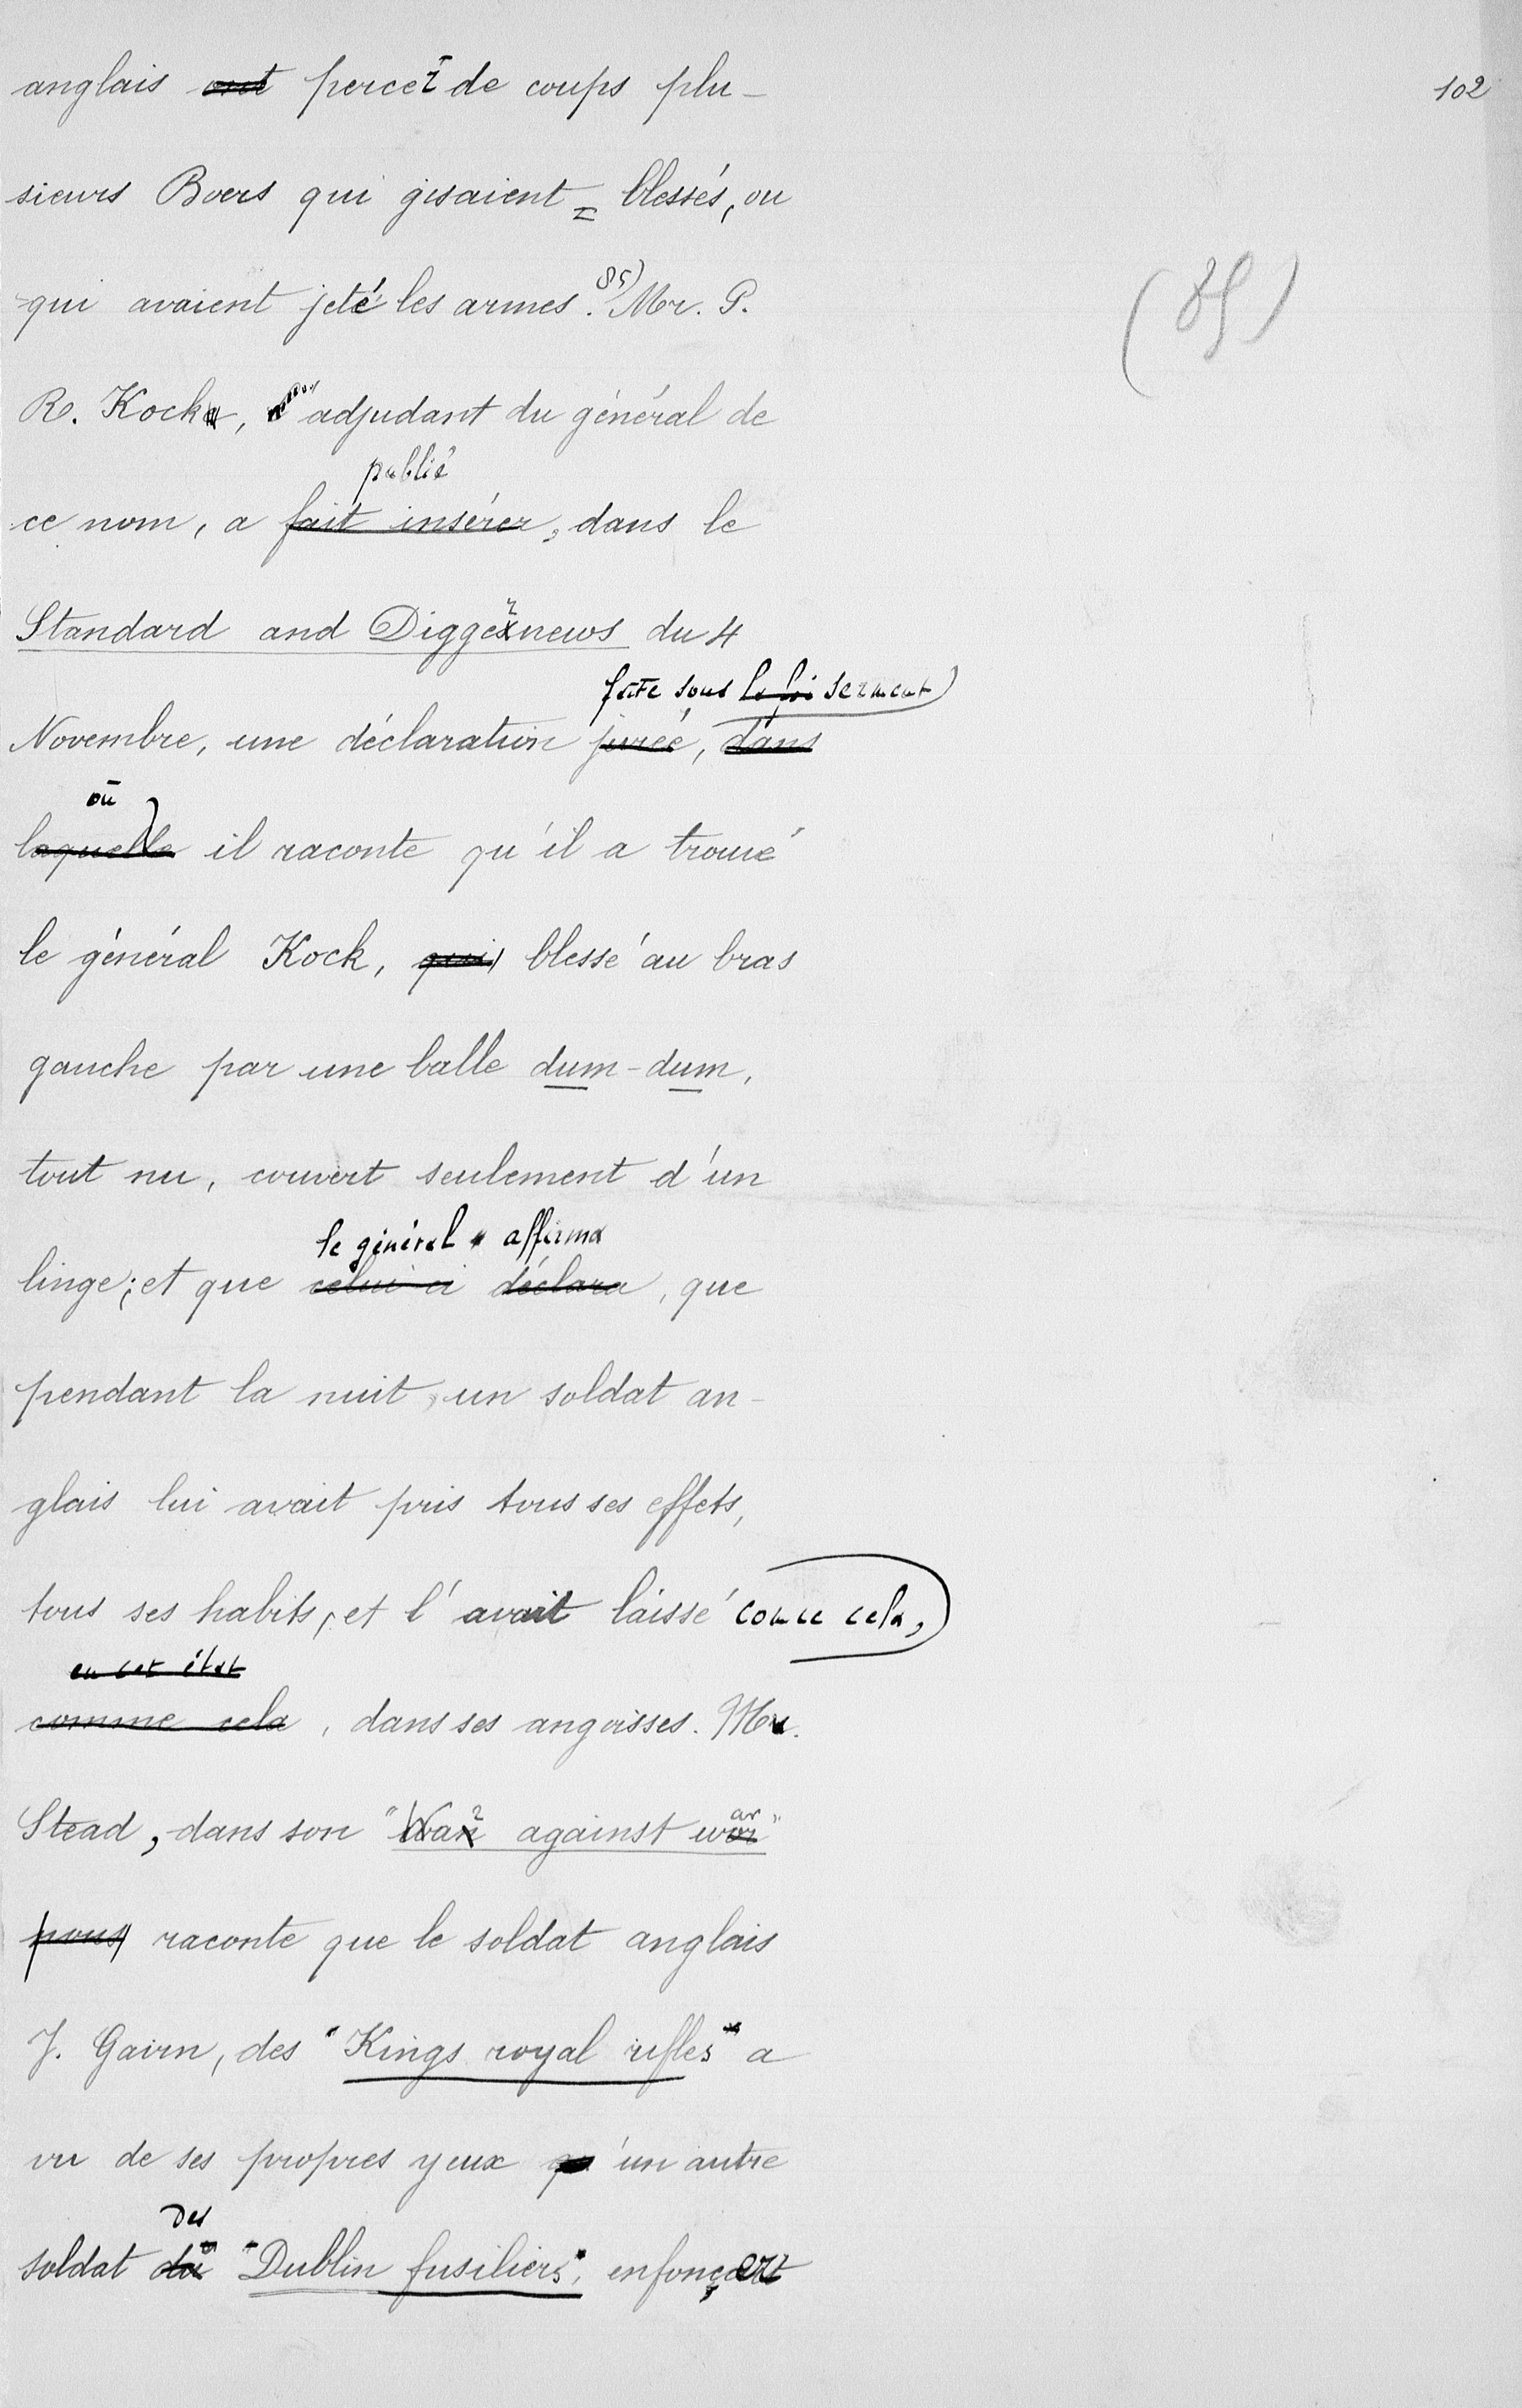 102
anglais ont percer de coups plu-
sieurs Boers qui gisaient = blessés, ou
qui avaient jeté les armes. 85) Mr. P.
(85)
R. Kock, adjudant du général de
publié
ce nom, a fait insérer, dans le
Standard and Digger news du 4
faite sous la foi serment
Novembre, une déclaration jurée, dans
où
laquelle il raconte qu'il a trouvé
le général Kock, qui blessé au bras
gauche par une balle dum-dum,
tout nu, couvert seulement d'un
le général affirma
linge; et que celui-ci déclara, que
pendant la nuit, un soldat an-
glais lui avait pris tous ses effets,
tous ses habits, et l'avait laissé comme cela,
en cet état
comme cela, dans ses angoisses. Mr.
Stead, dans son "War against war"
nous raconte que le soldat anglais
J. Gairn, des "Kings royal rifles" a
vu de ses propres yeux qu'un autre
des
soldat du "Dublin fusiliers", enfoncer